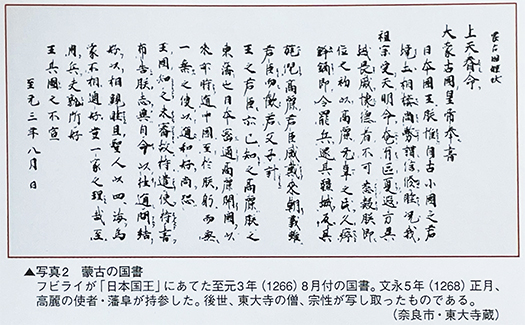 蒙古国牒状
上天眷命
大蒙古國皇帝奉書
日本國王朕惟自古小國之君
境土相接尚務講信修睦況我
祖宗受天明命奄有區夏遐方異
域畏威懷德者不可悉數朕即
位之初以高麗无辜之民久瘁
鋒鏑即令罷兵還其疆域反其
旄倪高麗君臣感戴来朝義雖
君臣而歡若父子計
王之君臣亦已知之高麗朕之
東藩也日本密邇高麗開國以
来亦時通中國至於朕躬而無
一乗之使以通和好尚恐
王國知之未審故特遣使持書
布告朕志冀自今以往通問結
好以相親睦且聖人以四海為
家不相通好豈一家之理哉至
用兵夫孰所好
王其圖之不宣
至元三年八月 日
▲写真2 蒙古の国書
フビライが「日本国王」にあてた至元3年（1266）8月付の国書。文永5年（1268）正月、
高麗の使者・藩阜が持参した。後世、東大寺の僧、宗性が写し取ったものである。
（奈良市・東大寺蔵）